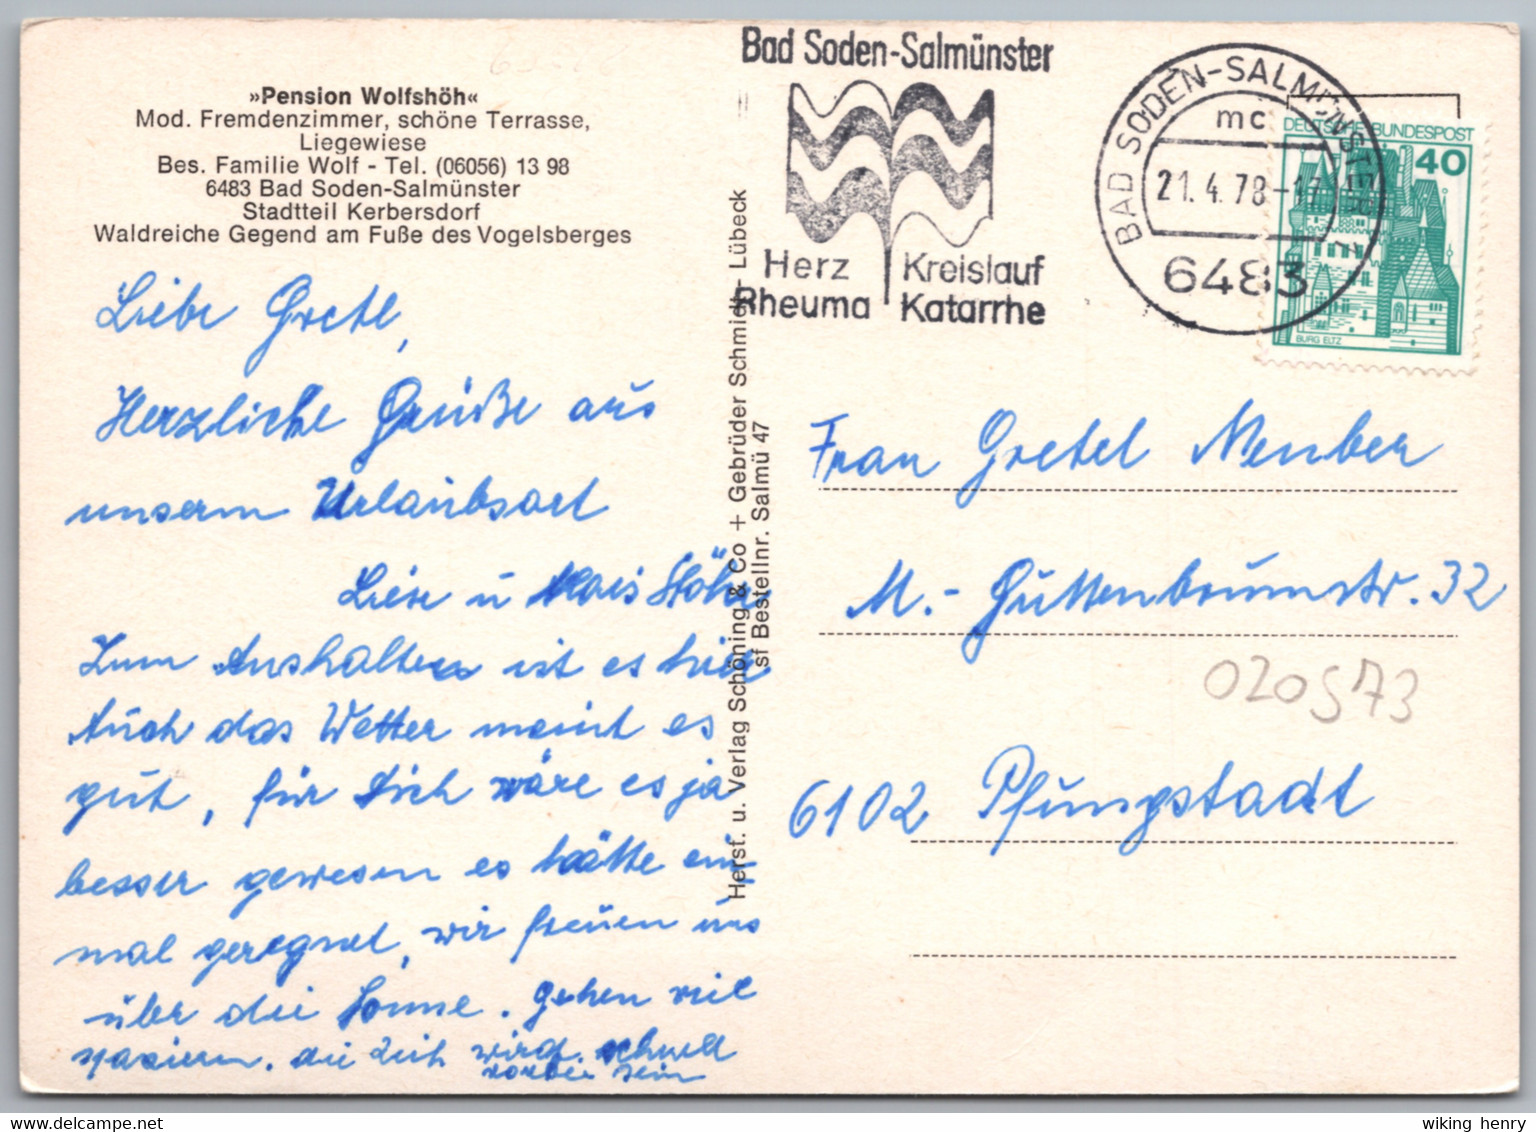 »Pension Wolfshöh«
Mod. Fremdenzimmer, schöne Terrasse,
Liegewiese
Bes. Familie Wolf - Tel. (06056) 13 98
6483 Bad Soden-Salmünster
Stadtteil Kerbersdorf
Waldreiche Gegend am Fuße des Vogelsberges
Liebe Gretl,
Herzliche Grüße aus
unserm Urlaubsort
Liese u
Zum Aushalten ist es hier
Auch das Wetter meint es
gut, für Dich wäre es ja
besser gewesen es hätte ein-
mal geregnet, wir freuen uns
über die Sonne. Gehen viel
spazieren. die Zeit wird schnell
vorbei sein
Herst. u. Verlag Schöning & Co + Gebrüder Schmidt - Lübeck
sf Bestellnr. Salmü 47
Bad Soden-Salmünster
Herz Kreislauf
Rheuma Katarrhe
BAD SODEN-SALMÜNSTER
mc
21.4.78-17
6483
DEUTSCHE BUNDESPOST
40
BURG ELTZ
Frau Gretel Meuber
M.-Guttenbrunnstr. 32
020573
6102 Pfungstadt
wiking henry